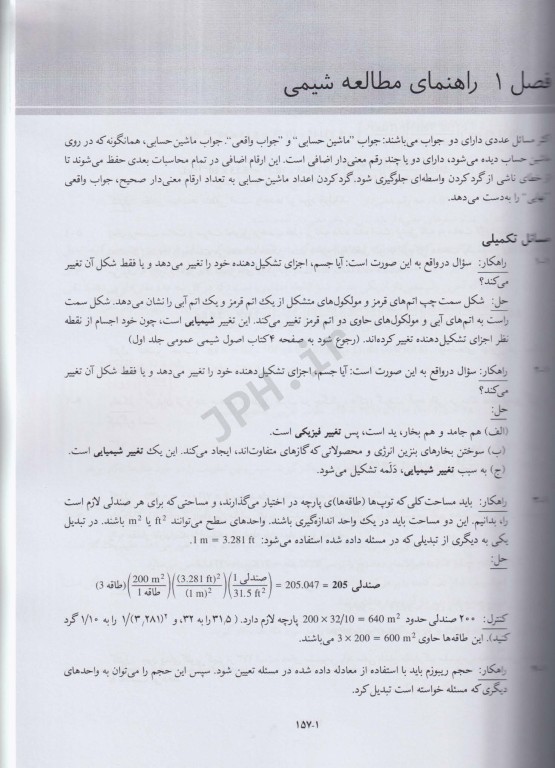 فصل ۱ راهنمای مطالعه شیمی
اکثر مسائل عددی دارای دو جواب می‌باشند: جواب "ماشین حسابی" و "جواب واقعی". جواب ماشین حسابی، همانگونه که در روی
ماشین حساب دیده می‌شود، دارای دو یا چند رقم معنی‌دار اضافی است. این ارقام اضافی در تمام محاسبات بعدی حفظ می‌شوند تا
از خطای ناشی از گرد کردن واسطه‌ای جلوگیری شود. گرد کردن اعداد ماشین حسابی به تعداد ارقام معنی‌دار صحیح، جواب واقعی
"نهایی" را به‌دست می‌دهد.
مسائل تکمیلی
راهکار: سؤال درواقع به این صورت است: آیا جسم، اجزای تشکیل‌دهنده خود را تغییر می‌دهد و یا فقط شکل آن تغییر
می‌کند؟
حل: شکل سمت چپ اتم‌های قرمز و مولکول‌های متشکل از یک اتم قرمز و یک اتم آبی را نشان می‌دهد. شکل سمت
راست به اتم‌های آبی و مولکول‌های حاوی دو اتم قرمز تغییر می‌کند. این تغییر شیمیایی است، چون خود اجسام از نقطه
نظر اجزای تشکیل‌دهنده تغییر کرده‌اند. (رجوع شود به صفحه ۴ کتاب اصول شیمی عمومی جلد اول)
راهکار: سؤال درواقع به این صورت است: آیا جسم، اجزای تشکیل‌دهنده خود را تغییر می‌دهد و یا فقط شکل آن تغییر
می‌کند؟
حل:
(الف) هم جامد و هم بخار، ید است، پس تغییر فیزیکی است.
(ب) سوختن بخارهای بنزین انرژی و محصولاتی که گازهای متفاوت‌اند، ایجاد می‌کند. این یک تغییر شیمیایی است.
(ج) به سبب تغییر شیمیایی، دَلَمه تشکیل می‌شود.
راهکار: باید مساحت کلی که توپ‌ها (طاقه‌ها)ی پارچه در اختیار می‌گذارند، و مساحتی که برای هر صندلی لازم است
را، بدانیم. این دو مساحت باید در یک واحد اندازه‌گیری باشند. واحدهای سطح می‌توانند ft² یا m² باشند. در تبدیل
یکی به دیگری از تبدیلی که در مسئله داده شده استفاده می‌شود: 1 m = 3.281 ft.
حل:
(3 طاقه)(200 m² / 1 طاقه)((3.281 ft)² / (1 m)²)(1 صندلی / 31.5 ft²) = 205.047 = 205 صندلی
کنترل: ۲۰۰ صندلی حدود 200 × 32/10 = 640 m² پارچه لازم دارد. (۳۱٫۵ را به ۳۲، و ۱/(۳٫۲۸۱)² را به ۱/۱۰ گرد
کنید). این طاقه‌ها حاوی 3 × 200 = 600 m² می‌باشند.
راهکار: حجم ریبوزم باید با استفاده از معادله داده شده در مسئله تعیین شود. سپس این حجم را می‌توان به واحدهای
دیگری که مسئله خواسته است تبدیل کرد.
۱-۱۵۷
JPH.ir